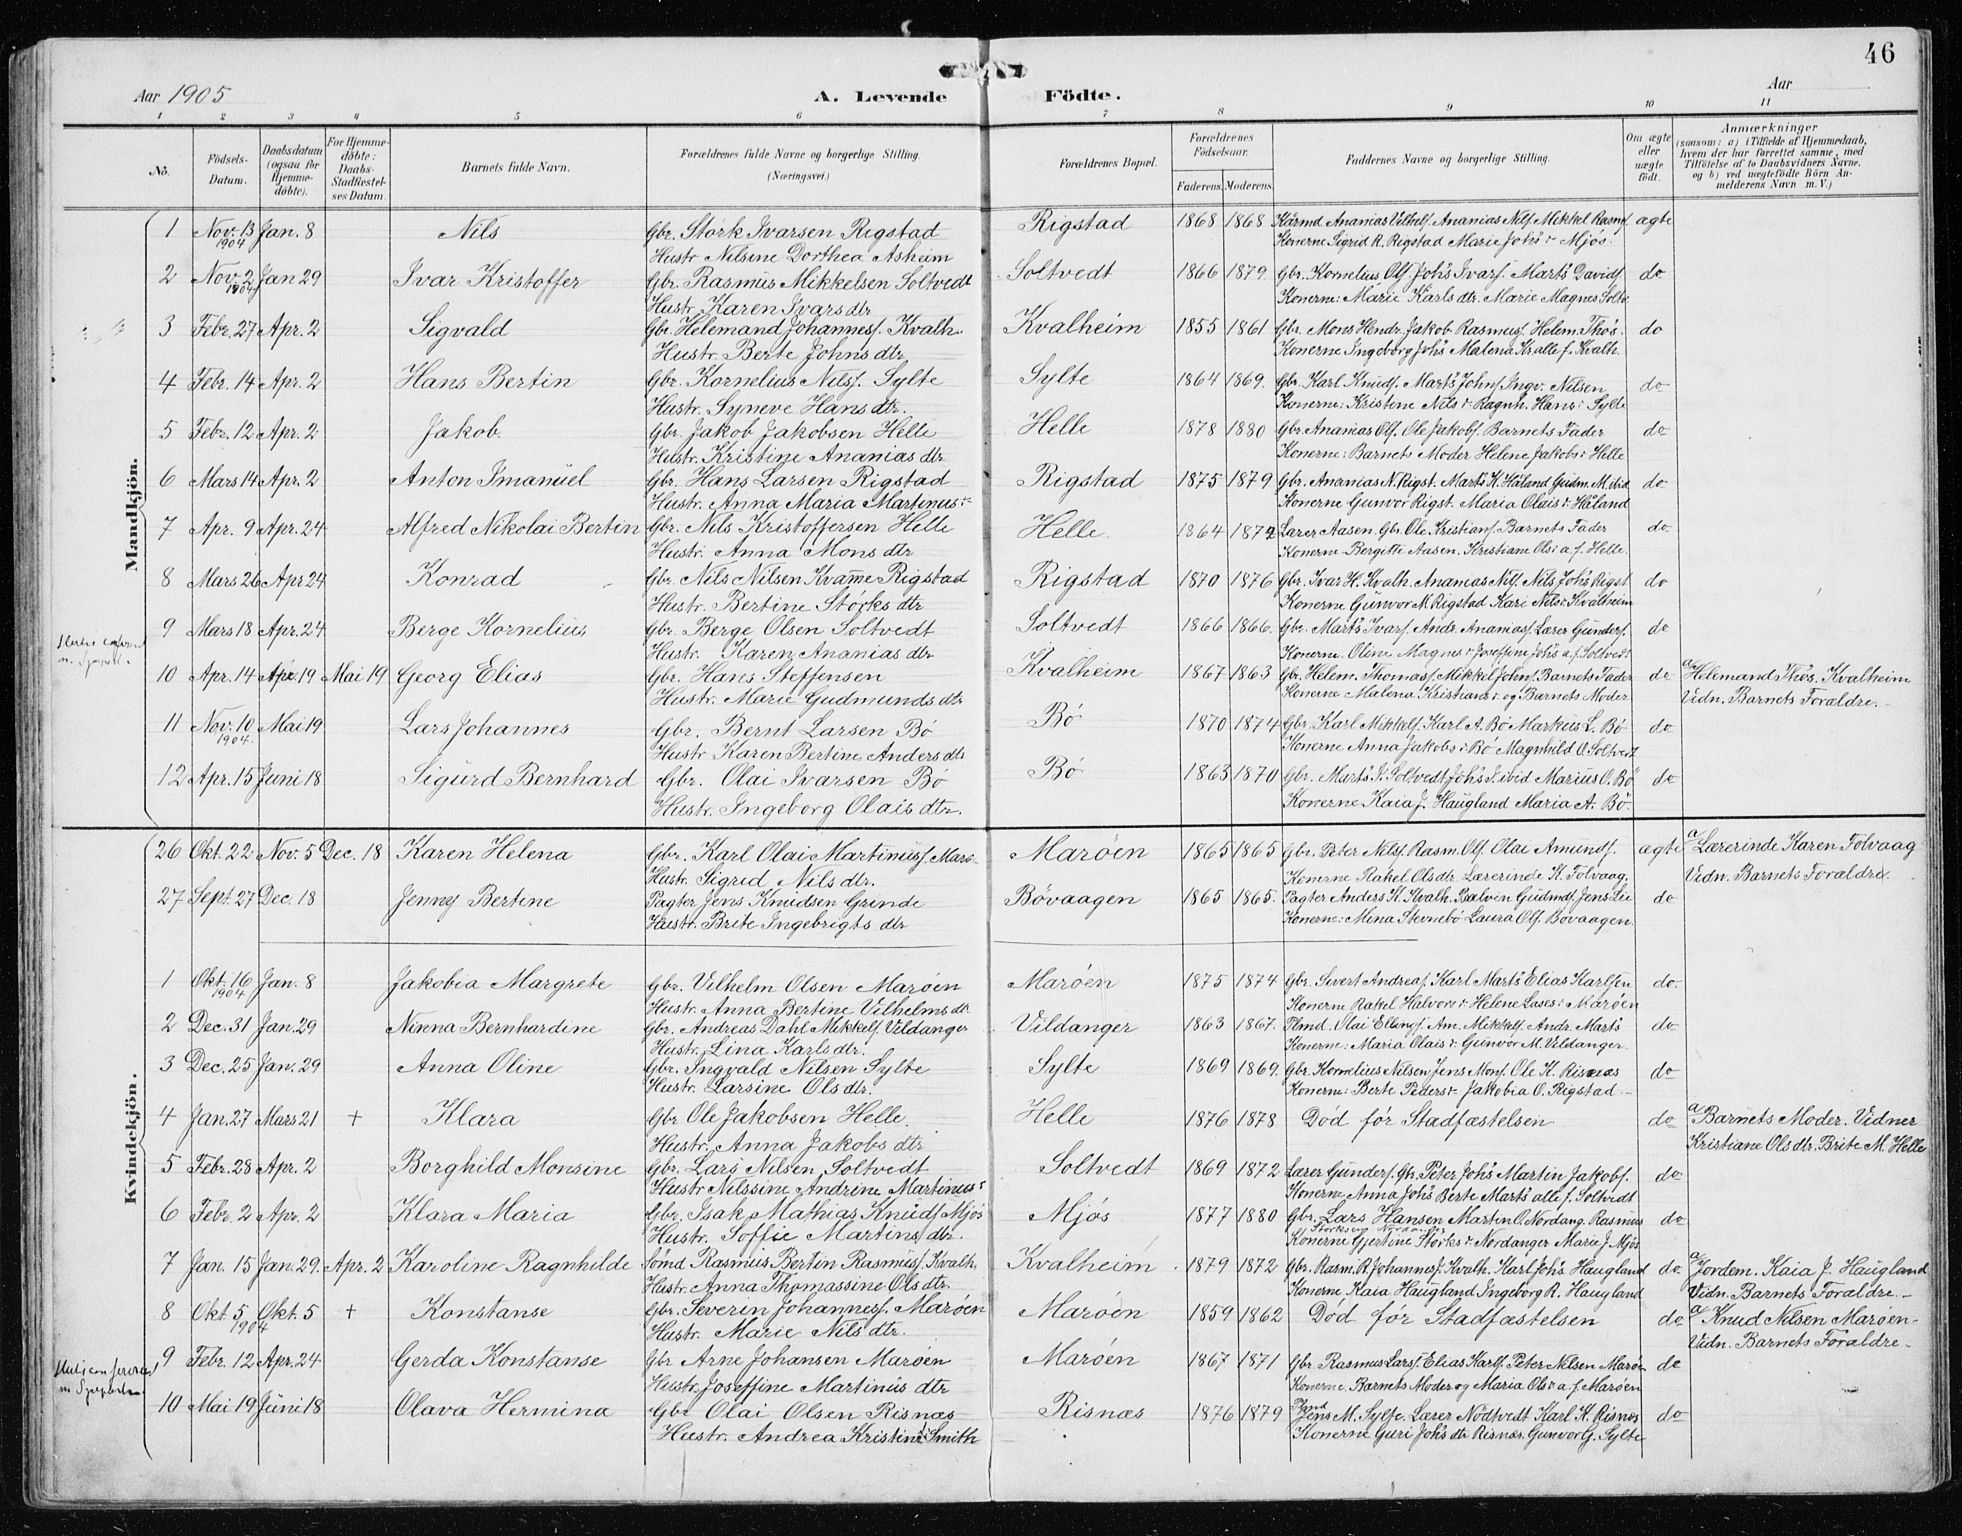 46
Aar 1905
A. Levende Födte.
Aar
1 2 3 4 5 6 7 8 9 10 11
No.
Födsels-Datum.
Daabsdatum (ogsaa for Hjemmedöbte).
For Hjemmedöbte: Daabs-Stadfæstelses Datum.
Barnets fulde Navn.
Forældrenes fulde Navne og borgerlige Stilling. (Næringsvei.)
Forældrenes Bopæl.
Forældrenes Födselsaar. Faderens. Moderens.
Faddernes Navne og borgerlige Stilling.
Om ægte eller uægte födt.
Anmærkninger (saasom: a) i Tilfælde af Hjemmedaab, hvem der har forrettet samme, med Tilföielse af to Daabsvidners Navne. og b) ved uægtefödte Börn Anmelderens Navn m. V.)
Mandkjön.
1 Nov. 13 1904 Jan. 8 Nils Gbr. Störk Ivarsen Rigstad Rigstad 1868 1868 Kårmd Ananias Vilhelf. Ananias Nilf Mikkel Rasmf. ægte
Hustr Nilsine Dorthea Asheim Konerne Sigrid R. Rigstad Marie Johs Mjös.
2 Nov. 2 1904 Jan 29 Ivar Kristoffer Gbr. Rasmus Mikkelsen Soltvedt Soltvedt 1866 1879. Gbr. Kornelius Olf Johs Ivarf. Marts Davidf. do
Hustr. Karen Ivars dtr Konerne: Marie Karls dtr. Marie Magnes Soltv.
3 Febr. 27 Apr. 2 Sigvald Gbr. Helemand Johannesf. Kvalh. Kvalheim 1855 1861 Gbr. Mons Hendr. Jakob Rasmusf. Helem. Thos. do
Hustr. Berte Johns dtr Konerne Ingeborg Johs Malena Kr. alle f. Kvalh.
4 Febr. 14 Apr. 2 Hans Bertin Gbr. Kornelius Nilsf. Sylte Sylte 1864 1869. Gbr. Karl Knudf. Marts Johnf. Ingv. Nilsen do
Hustr. Syneve Hans dtr. Konerne: Kristine Nils Ragnh. Hans Sylte
5 Febr. 12 Apr. 2 Jakob. Gbr. Jakob Jakobsen Helle Helle 1878 1880 Gbr. Ananias Olf. Ole Jakobf. Barnets Fader do
Hustr. Kristine Ananias dtr Konerne: Barnets Moder Helene Jakobs Helle
6 Mars 14 Apr. 2 Anton Imanuel Gbr. Hans Larsen Rigstad Rigstad 1875 1879 Gbr. Ananias N. Rigst. Marts K. Håland Gudm. M. ibid do
Hustr. Anna Maria Martinus Konerne Gunvor Rigst. Maria Olais Håland
7 Apr. 9 Apr. 24 Alfred Nikolai Bertin Gbr. Nils Kristoffersen Helle Helle. 1864 1872 Lærer Aasen. Gbr. Ole Kristianf. Barnets Fader do
Hustr. Anna Mons dtr Konerne. Bergitte Aasen. Kristiane Ols a. f. Helle.
8 Mars 26 Apr 24 Konrad Gbr. Nils Nilsen Kvamme Rigstad Rigstad 1870 1876 Gbr. Ivar H. Kvalh. Ananias Nilf. Nils Johs Rigst do
Hustr. Bertine Störks dtr Konerne Gunvor M. Rigstad Kari Nils Kvalheim
9 Mars 18 Apr. 24 Berge Kornelius Gbr. Berge Olsen Soltvedt Soltvedt 1866 1866. Gbr. Marts Ivarf. Andr. Ananiasf. Lærer Gunderf. do
Hustr. Karen Ananias dtr Konerne. Oline Magnes Joseffine Johs a. f. Soltvedt
10 Apr. 14 Apr 19 Mai 19 Georg Elias Gbr. Hans Steffensen Kvalheim 1867 1863 Gbr. Helem. Thomasf. Mikkel Johnf. Barnets Fader do a. Helemand Thos. Kvalheim
Hustr. Marie Gudmunds dtr Konerne Malena Kristians og Barnets Moder Vidn. Barnets Forældre.
11 Nov. 10 1904. Mai 19 Lars Johannes Gbr. Bernt Larsen Bö Bö 1870 1874 Gbr. Karl Mikkelf. Karl A. Bö Markus L. Bö do
Hustr. Karen Bertine Anders dtr Konerne Anna Jakobs Bö Magnhild O. Soltvedt
12 Apr. 15 Juni 18 Sigurd Bernhard Gbr. Olai Ivarsen Bö Bö 1863 1870 Gbr. Marts I. Soltvedt Johs I. ibid Marius O. Bö do
Hustr. Ingeborg Olais dtr. Konerne Kaia J. Haugland Maria A. Bö.
Kvindekjön.
26 Okt. 22 Nov. 5 Dec. 18 Karen Helena Gbr. Karl Olai Martinusf. Marö. Maröen 1865 1865 Gbr. Peter Nilsf. Rasm. Olf. Olai Amundf. ægte a. Lærerinde Karen Tolvaag
Hustr. Sigrid Nils dtr. Konerne Rakel Ols dtr. Lærerinde K. Tolvaag. Vidn. Barnets Forældre.
27 Sept. 27 Dec. 18 Jenny Bertine Pagter Jens Knudsen Grinde Bövaagen 1865 1865. Pagter Anders K. Kvalh. Salvin Gudmdf. Jens Lie do
Hustr. Brite Ingebrigts dtr Konerne: Mina Stevnebö Laura Olf. Bövaagen.
1 Okt. 16 1904 Jan. 8 Jakobia Margrete Gbr. Vilhelm Olsen Maröen Maröen 1875 1874 Gbr. Sivert Andreaf. Karl Marts Elias Karlsen do.
Hustr. Anna Bertine Vilhelms dtr Konerne Rakel Halvors Helene Lases Maröen
2 Dec. 31 Jan. 29 Ninna Bernhardine Gbr. Andreas Dahl Mikkelf. Vildanger Vildanger 1863 1867. Plmd. Olai Ellingf. Am. Mikkelf. Andr. Marts do
Hustr. Lina Karls dtr. Konerne: Maria Olais Gunvor M. Vildanger.
3 Dec. 25 Jan. 29 Anna Oline Gbr. Ingvald Nilsen Sylte Sylte 1869 1869. Gbr. Kornelius Nilsen Jens Monf. Ole K. Risnæs do
Hustr. Larsine Ols dtr. Konerne: Berte Peders Jakobia O. Rigstad.
4 Jan. 27 Mars 21 + Klara Gbr Ole Jakobsen Helle. Helle 1876 1878 Död för Stadfæstelsen do a. Barnets Moder. Vidner
Hustr. Anna Jakobs dtr Kristiane Ols dtr. Brite M. Helle
5 Febr. 28 Apr. 2 Borghild Monsine Gbr. Lars Nilsen Soltvedt Soltvedt 1869 1872 Lærer Gunderf. Gbr. Peter Johs Martin Jakobf. do
Hustr Nilssine Andrine Martinus Konerne Anna Johs Berte Marts alle f. Soltvedt
6 Febr. 2 Apr. 2 Klara Maria Gbr. Isak Mathias Knudf. Mjös Mjös 1877 1880 Gbr. Lars Hansen Martin O. Nordang. Rasmus do
Hustr. Soffie Martins dtr. Störksen Nordanger Konerne Gjertine Störks Nordanger Marie J. Mjös
7 Jan. 15 Jan. 29. Apr. 2 Karoline Ragnhilde Sömd Rasmus Bertin Rasmusf. Kvalh. Kvalheim 1879 1872 Gbr. Rasm. R. Johannesf. Kvalh. Karl Johs Haugland do a. Jordem. Kaia J. Haugland
Hustr. Anna Thomassine Ols dtr. Konerne Kaia Haugland Ingeborg R. Haugland Vidn. Barnets Forældre.
8 Okt. 5 1904 Okt. 5 + Konstanse Gbr. Severin Johannesf. Maröen Maröen 1859 1862 Död för Stadfæstelsen do a. Knud Nilsen Maröen
Hustr. Marie Nils dtr. Vidn. Barnets Forældre
9 Febr. 12 Apr. 24 Gerda Konstanse Gbr Arne Johansen Maröen Maröen 1867 1871 Gbr. Rasmus Larsf. Elias Karlf. Peter Nilsen Maröe do
Hustr. Joseffine Martinus dtr Konerne. Barnets Moder og Maria Ols a. f. Maröen
10 Mai 19 Juni 18 Olava Hermina Gbr Olai Olsen Risnæs Risnæs 1876 1879 Jens M. Sylte. Lærer Nödtvedt Karl K. Risnæs do
Hustr. Andrea Kristine Smith Konerne Guri Johs dtr Risnæs. Gunvor G. Sylte